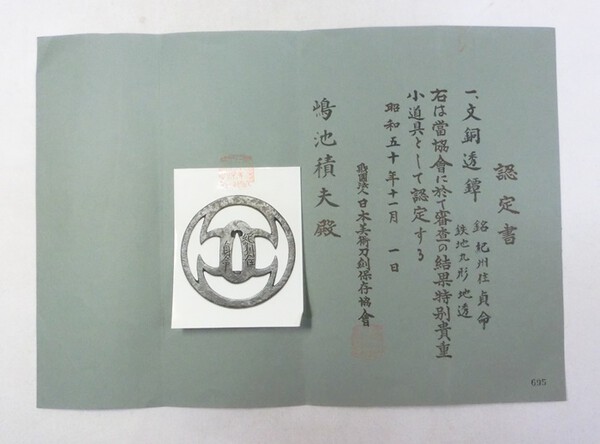 認定書
一、文銅透鐔 銘 紀州住貞命
鉄地丸形地透
右は當協會に於て審査の結果特別貴重
小道具として認定する
昭和五十年十一月 一日
財團法人日本美術刀剣保存協會
嶋池積夫殿
695